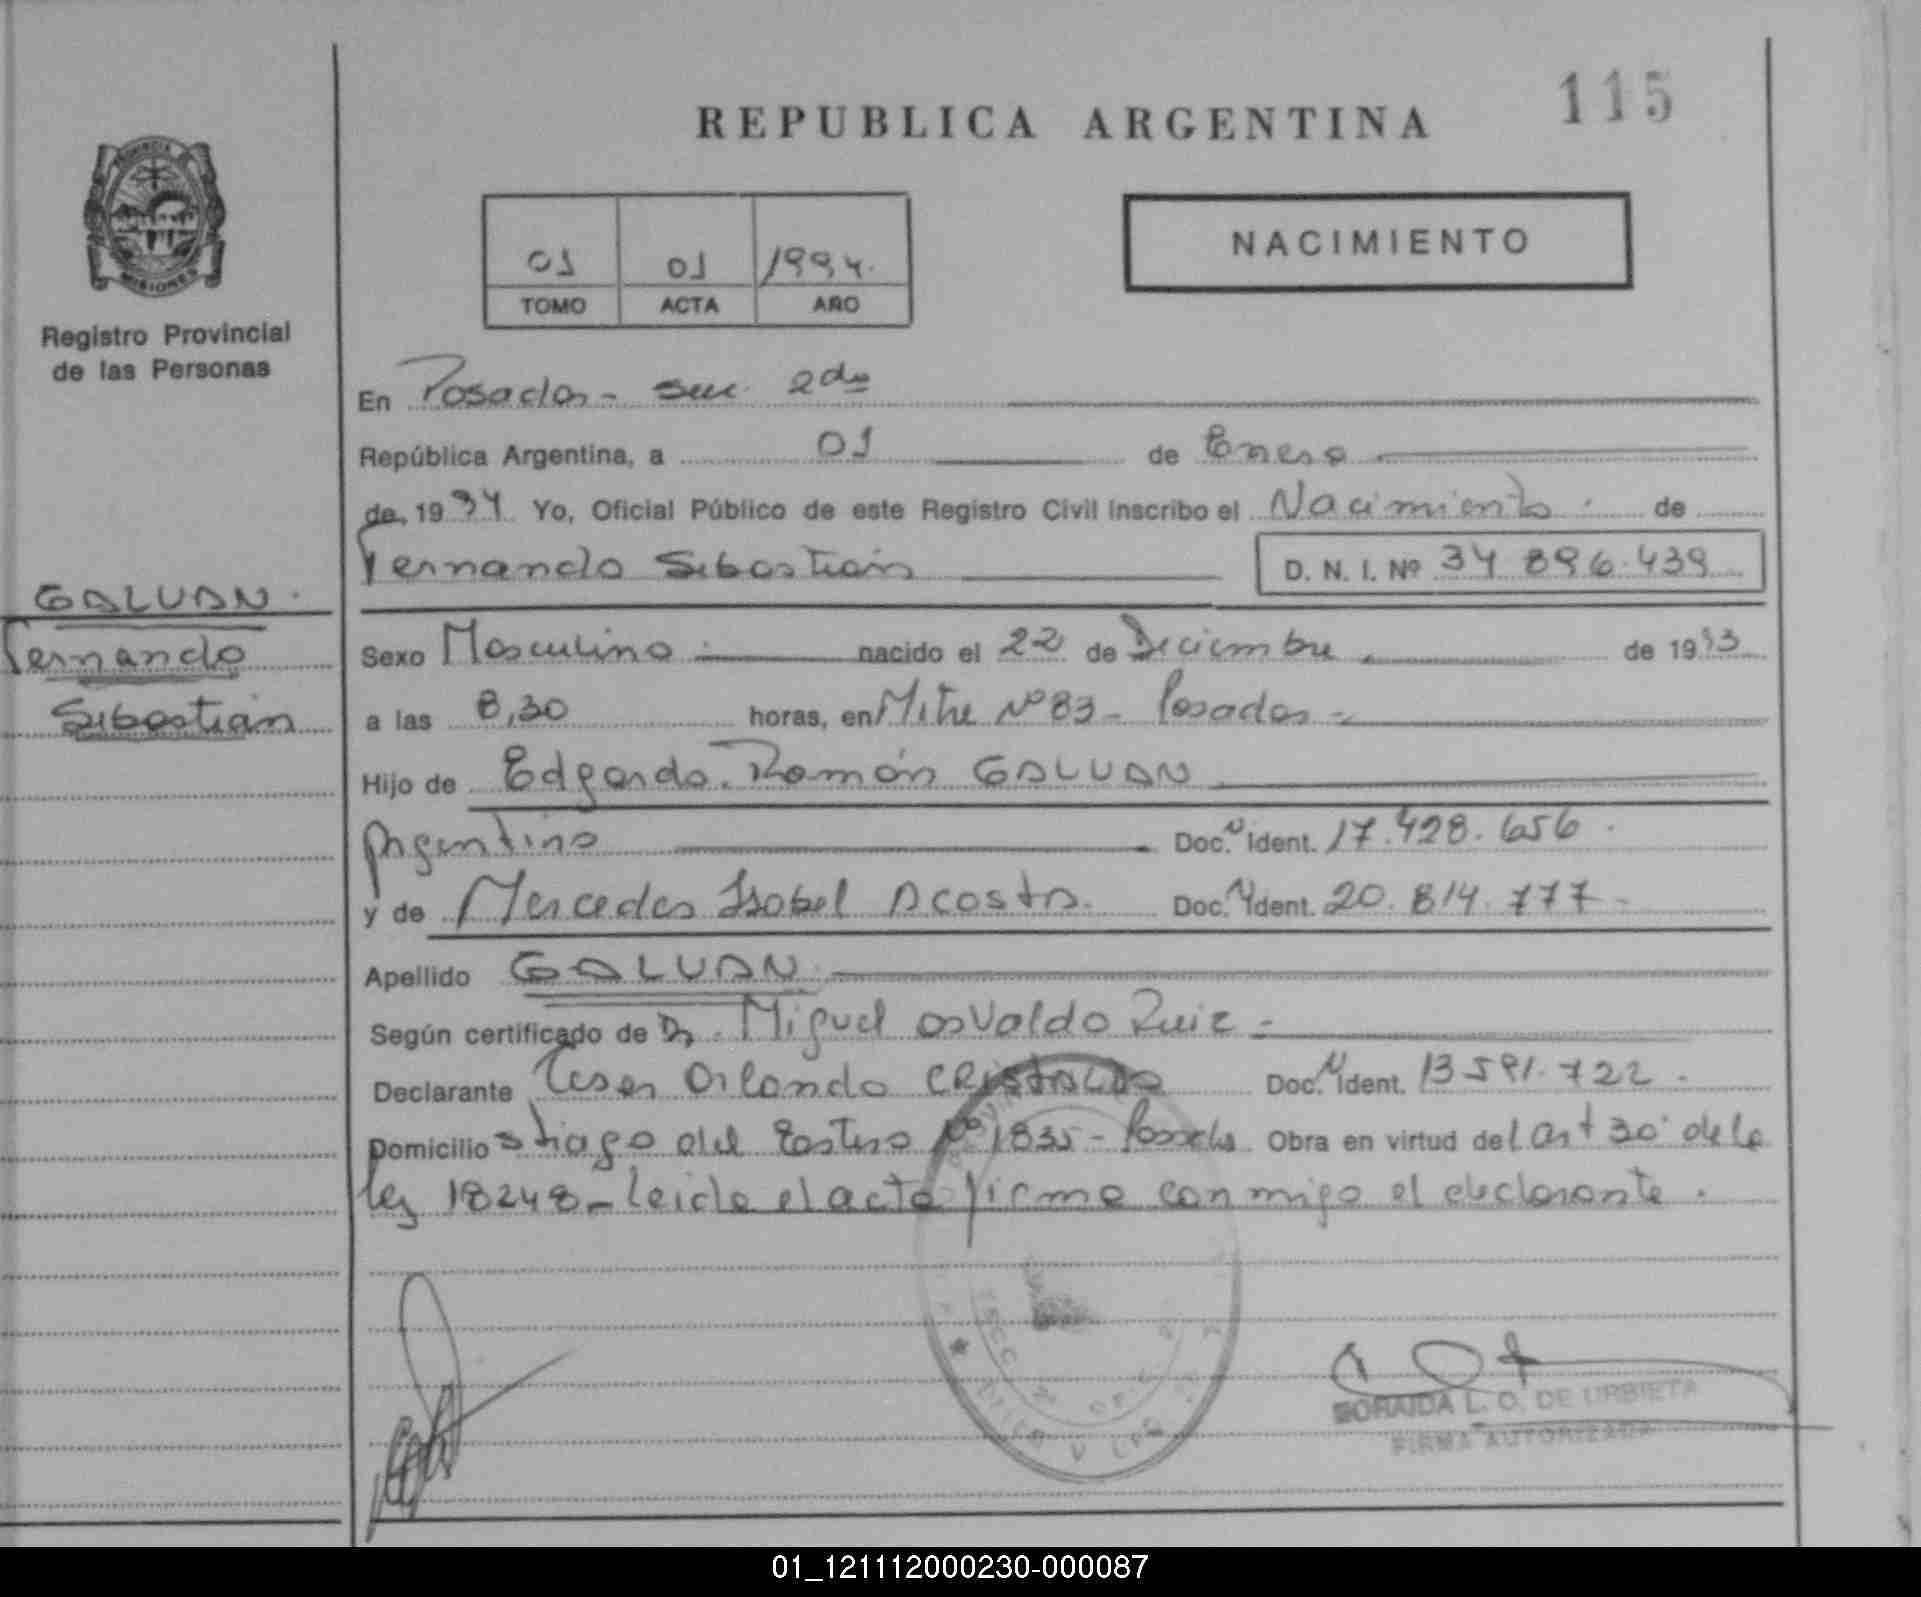 115
REPUBLICA ARGENTINA
PROVINCIA
MISIONES
Registro Provincial
de las Personas
01 01 1994.
TOMO ACTA AÑO
NACIMIENTO
En Posadas - sec 2da
República Argentina, a 01 de Enero
de 1994 Yo, Oficial Público de este Registro Civil inscribo el Nacimiento de
Fernando Sebastián D. N. I. Nº 34 896.439
GALVAN.
Fernando
Sebastián
Sexo Masculino nacido el 22 de Diciembre de 1993
a las 8,30 horas, en Mitre Nº 83 - Posadas -
Hijo de Edgardo Ramón GALVAN
Argentino Doc. Ident. 17.428.656.
y de Mercedes Isabel Acosta. Doc. Ident. 20.814.777-
Apellido GALVAN
Según certificado de Dr. Miguel Osvaldo Ruiz -
Declarante Orlando CRISTALDO Doc. Ident. 13 591.722.
Domicilio Stiago del Estero Nº 1835 - Posadas Obra en virtud del art 30 de la
ley 18248 - Leida el acta firma conmigo el declarante.
SORAIDA L. O. DE URBIETA
FIRMA AUTORIZADA
01_121112000230-000087